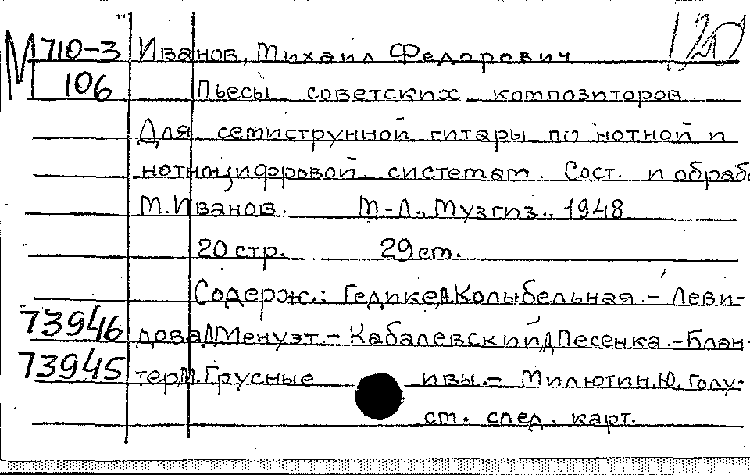 М 710-3 Иванов, Михаил Федорович
106 Пьесы советских композиторов
Для семиструнной гитары по нотной и
нотноцифровой системам. Сост. и обраб
М. Иванов. М.-Л., Музгиз., 1948
20 стр. 29 см.
Содерж.: Гедике А Колыбельная. - Леви-
73946 дова Д Менуэт. - Кабалевский Д Песенка. - Блан-
73945 тер М. Грусные ивы. - Милютин. Ю. Голу-
см. след. карт.